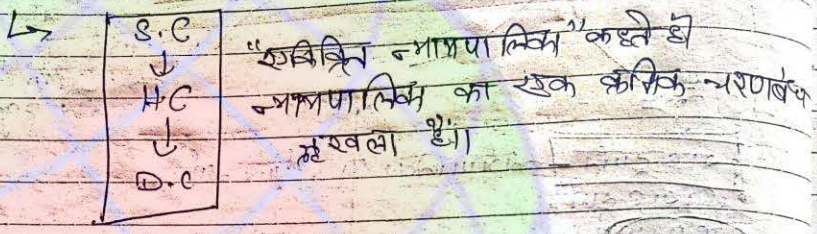 ↳ S.C
↓
H.C
↓
D.C
"एकीकृत न्यायपालिका" कहते हैं
न्यायपालिका का एक क्रमिक चरणबंध
श्रृंखला हैं।